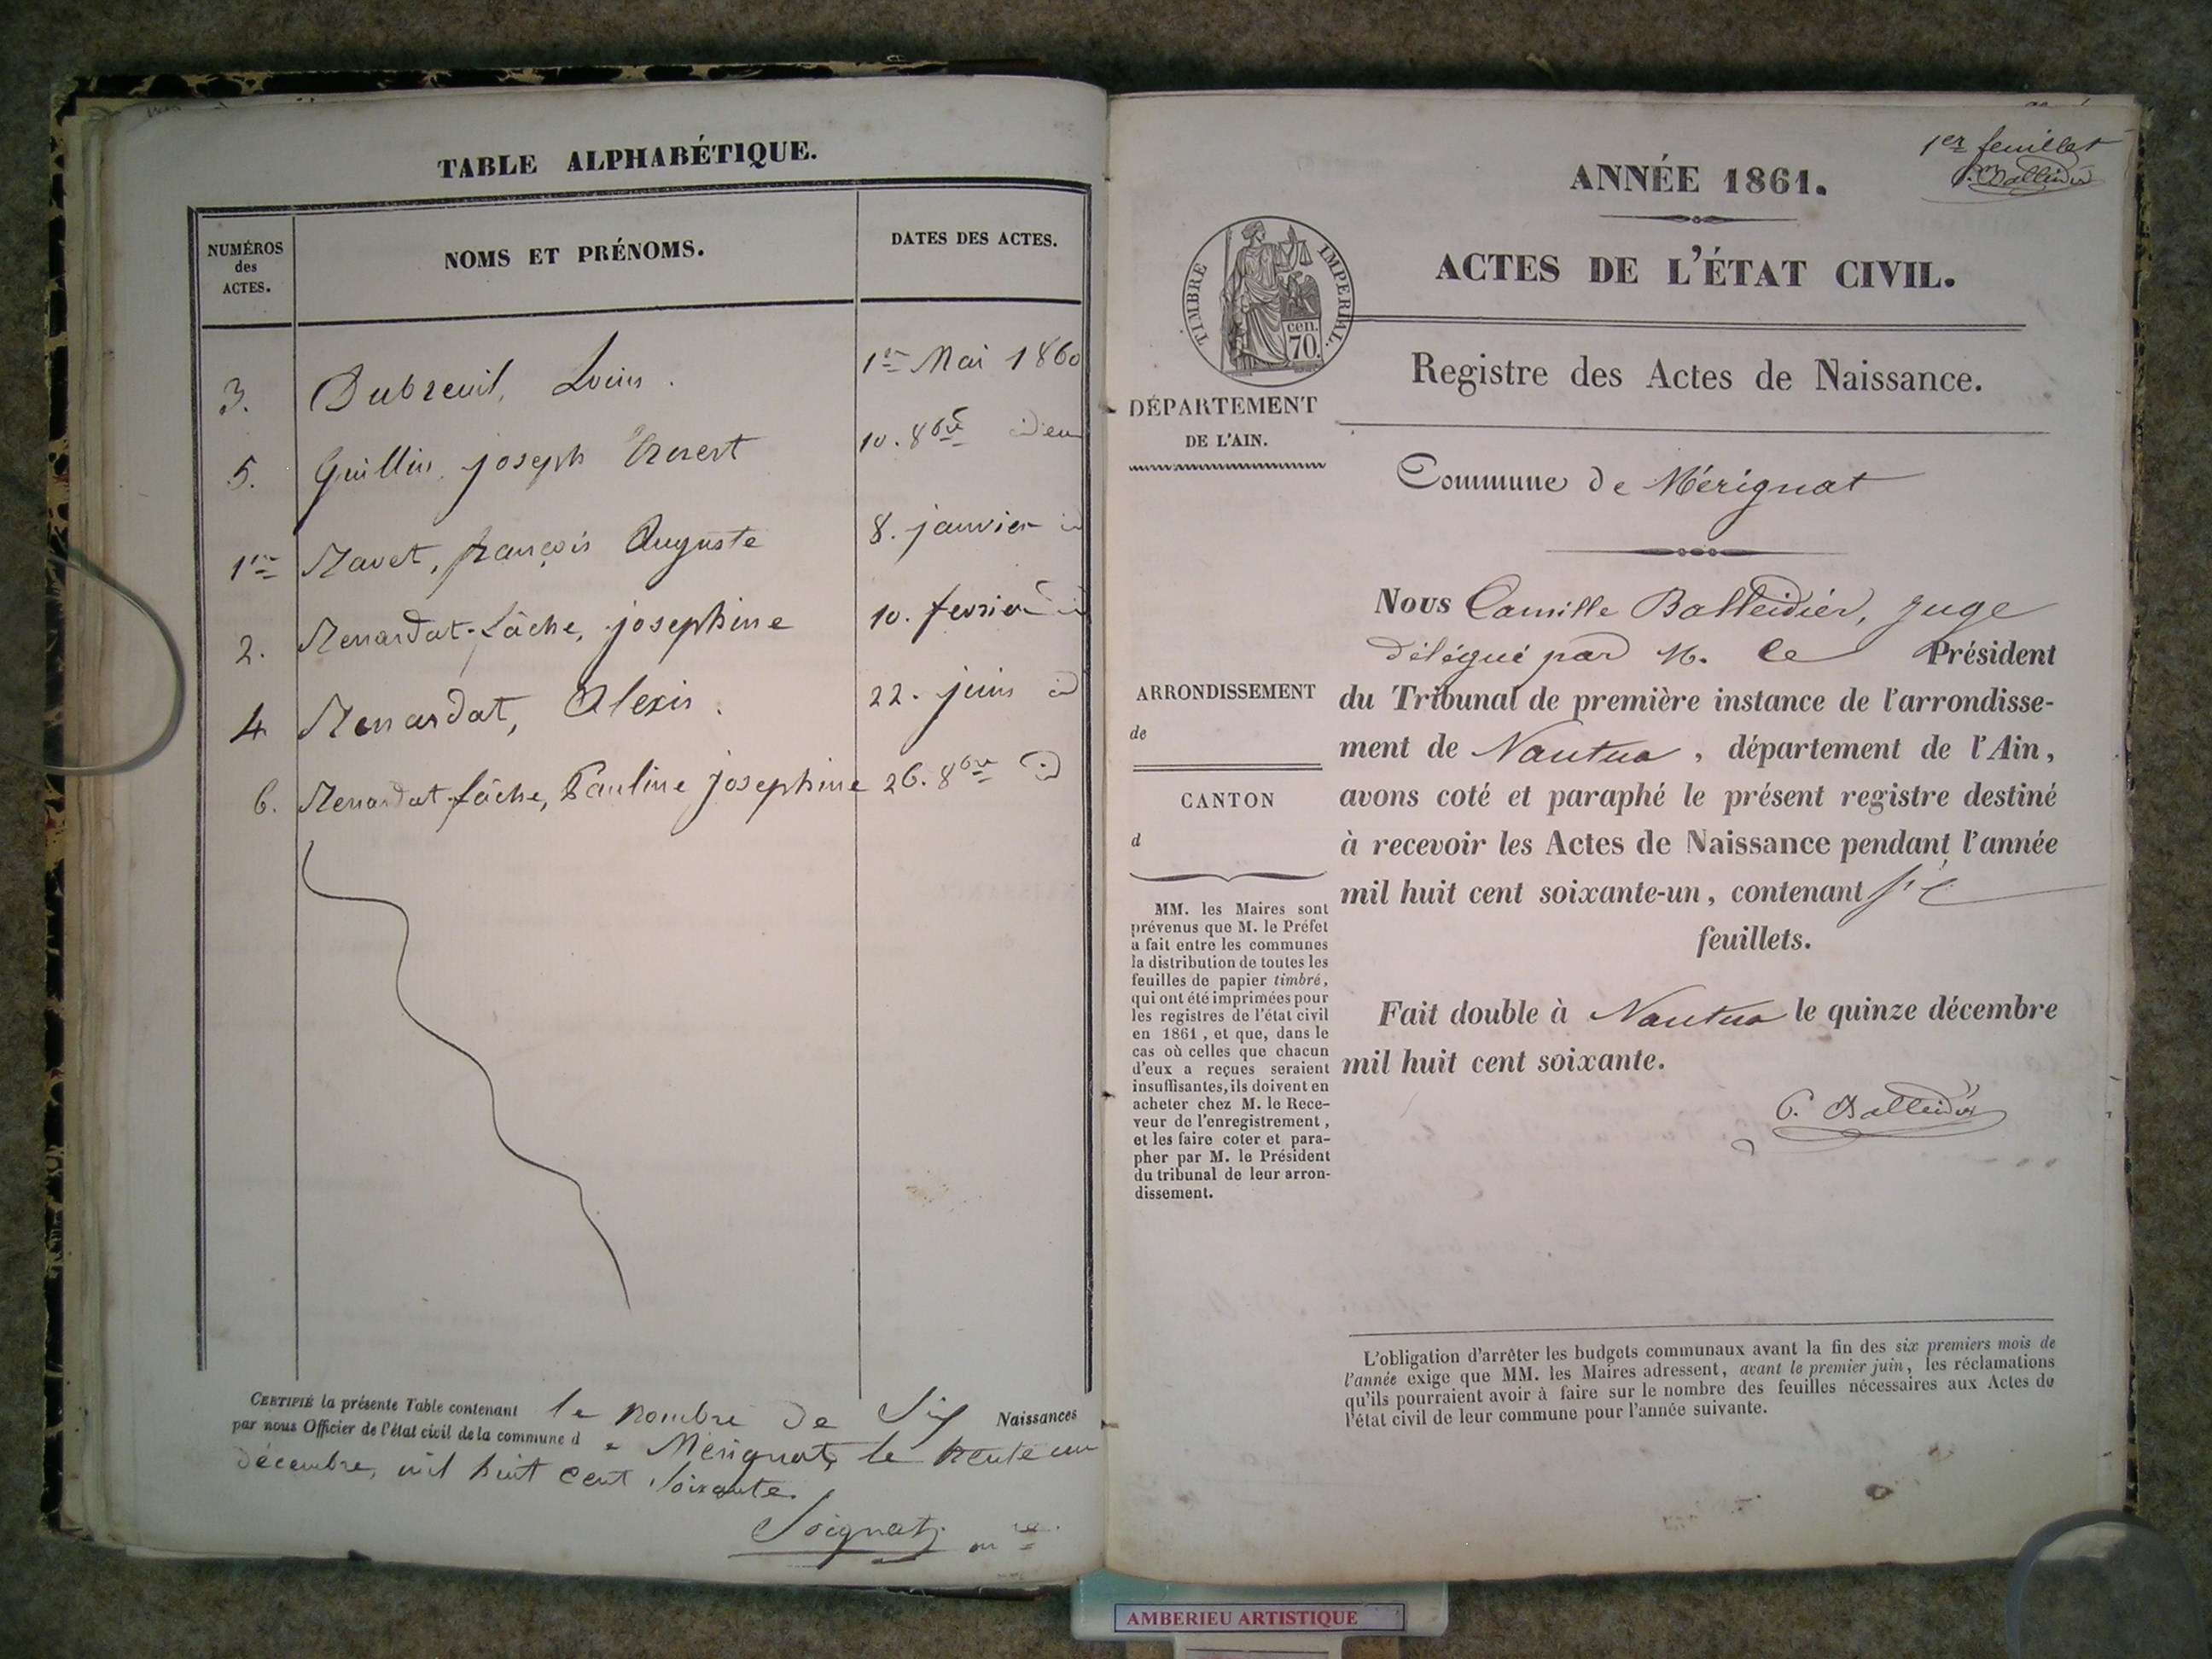 TABLE ALPHABÉTIQUE.
NUMÉROS des ACTES.
NOMS ET PRÉNOMS.
DATES DES ACTES.
3. Dubreuil, Louis. 1er Mai 1860
5. Guillin, joseph 10. 8bre idem
1er Navet, françois Auguste 8. janvier id
2. Menardat-Lâche, josephine 10. fevrier id
4 Menardat, Alexis. 22. juin id
6. Menardat-Lâche, Pauline josephine 26. 8bre id
CERTIFIÉ la présente Table contenant le nombre de Six Naissances
par nous Officier de l'état civil de la commune de Mérignat, le trente un
décembre, mil huit cent soixante.
Soignat, m re
1er feuillet
C. Balleidier
ANNÉE 1861.
ACTES DE L'ÉTAT CIVIL.
TIMBRE IMPÉRIAL.
cen. 70.
Registre des Actes de Naissance.
DÉPARTEMENT
DE L'AIN.
Commune de Mérignat
ARRONDISSEMENT
de
CANTON
d
MM. les Maires sont
prévenus que M. le Préfet
a fait entre les communes
la distribution de toutes les
feuilles de papier timbré,
qui ont été imprimées pour
les registres de l'état civil
en 1861, et que, dans le
cas où celles que chacun
d'eux a reçues seraient
insuffisantes, ils doivent en
acheter chez M. le Rece-
veur de l'enregistrement,
et les faire coter et para-
pher par M. le Président
du tribunal de leur arron-
dissement.
Nous Camille Balleidier, juge
délégué par M. le Président
du Tribunal de première instance de l'arrondisse-
ment de Nantua, département de l'Ain,
avons coté et paraphé le présent registre destiné
à recevoir les Actes de Naissance pendant l'année
mil huit cent soixante-un, contenant
feuillets.
Fait double à Nantua le quinze décembre
mil huit cent soixante.
C. Balleidier
L'obligation d'arrêter les budgets communaux avant la fin des six premiers mois de
l'année exige que MM. les Maires adressent, avant le premier juin, les réclamations
qu'ils pourraient avoir à faire sur le nombre des feuilles nécessaires aux Actes de
l'état civil de leur commune pour l'année suivante.
AMBERIEU ARTISTIQUE